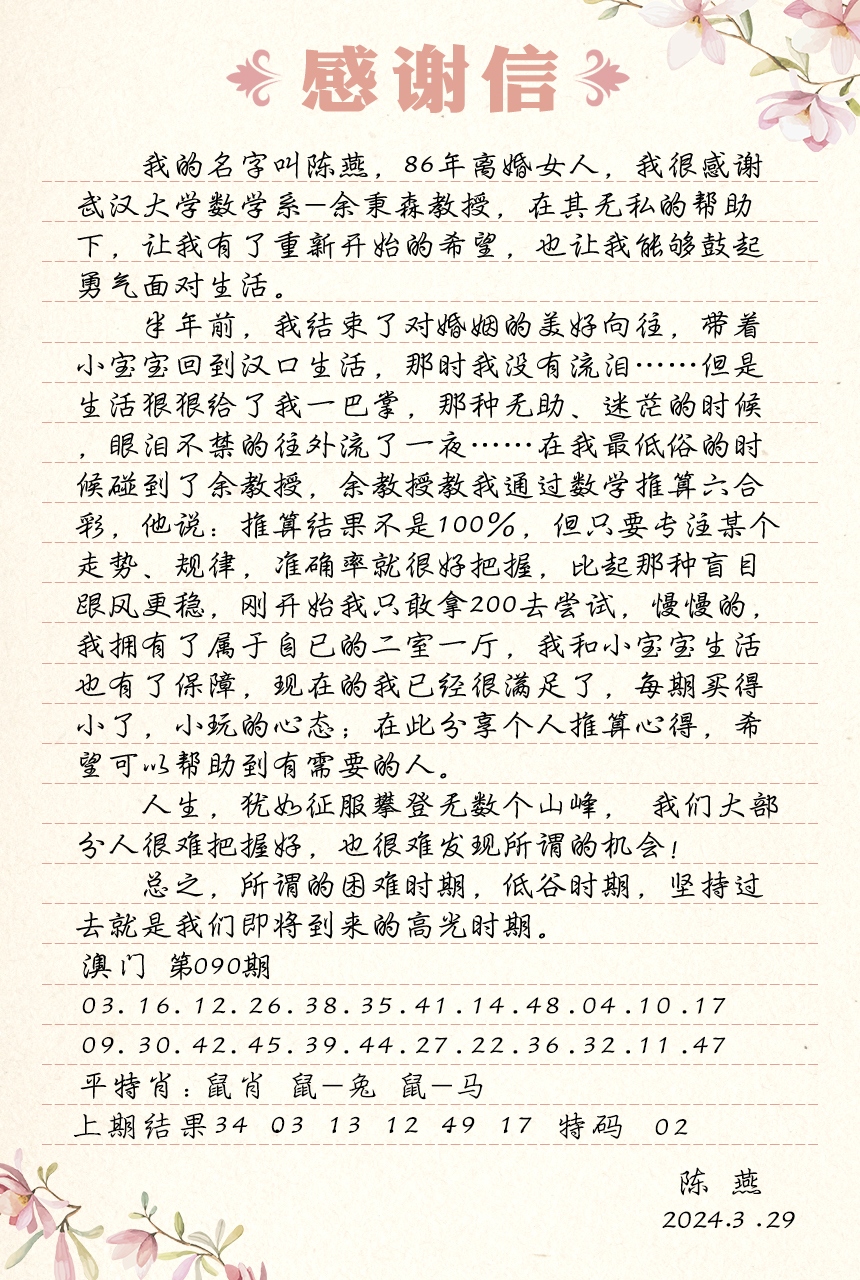 感谢信
我的名字叫陈燕，86年离婚女人，我很感谢
武汉大学数学系—余秉森教授，在其无私的帮助
下，让我有了重新开始的希望，也让我能够鼓起
勇气面对生活。
半年前，我结束了对婚姻的美好向往，带着
小宝宝回到汉口生活，那时我没有流泪……但是
生活狠狠给了我一巴掌，那种无助、迷茫的时候
，眼泪不禁的往外流了一夜……在我最低俗的时
候碰到了余教授，余教授教我通过数学推算六合
彩，他说：推算结果不是100%，但只要专注某个
走势、规律，准确率就很好把握，比起那种盲目
跟风更稳，刚开始我只敢拿200去尝试，慢慢的，
我拥有了属于自已的二室一厅，我和小宝宝生活
也有了保障，现在的我已经很满足了，每期买得
小了，小玩的心态；在此分享个人推算心得，希
望可以帮助到有需要的人。
人生，犹如征服攀登无数个山峰， 我们大部
分人很难把握好，也很难发现所谓的机会！
总之，所谓的困难时期，低谷时期，坚持过
去就是我们即将到来的高光时期。
澳门 第090期
03.16.12.26.38.35.41.14.48.04.10.17
09.30.42.45.39.44.27.22.36.32.11.47
平特肖：鼠肖 鼠—兔 鼠—马
上期结果34 03 13 12 49 17 特码 02
陈 燕
2024.3.29